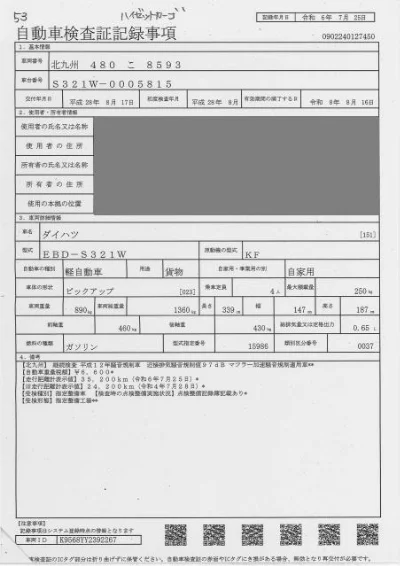 53 ハイゼットカーゴ
記録年月日 令和 6年 7月 25日
自動車検査証記録事項 0902240127450
1. 基本情報
車両番号 北九州 480 こ 8593
車台番号 S321W-0005815
交付年月日 平成 28年 8月 17日 初度検査年月 平成 28年 8月 有効期間の満了する日 令和 8年 8月 16日
2. 使用者・所有者情報
使用者の氏名又は名称
使用者の住所
所有者の氏名又は名称
所有者の住所
使用の本拠の位置
3. 車両詳細情報
車名 ダイハツ [151]
型式 EBD-S321W 原動機の型式 KF
自動車の種別 軽自動車 用途 貨物 自家用・事業用の別 自家用
車体の形状 ピックアップ [023] 乗車定員 4人 最大積載量 250kg
車両重量 890kg 車両総重量 1360kg 長さ 339cm 幅 147cm 高さ 187cm
前軸重 460kg 後軸重 430kg 総排気量又は定格出力 0.65L
燃料の種類 ガソリン 型式指定番号 15986 類別区分番号 0037
4. 備考
【北九州】 継続検査 平成12年騒音規制車 近接排気騒音規制値97dB マフラー加速騒音規制適用車**
【自動車重量税額】¥6,600*
【走行距離計表示値】35,200km(令和6年7月25日)*
【旧走行距離計表示値】24,200km(令和4年7月28日)*
【受検種別】指定整備車 【検査時の点検整備実施状況】点検整備記録簿記載あり*
【受検形態】指定整備工場**
【注意事項】
記録事項はシステム登録時点の情報となります
車両ID K9568YY2392267